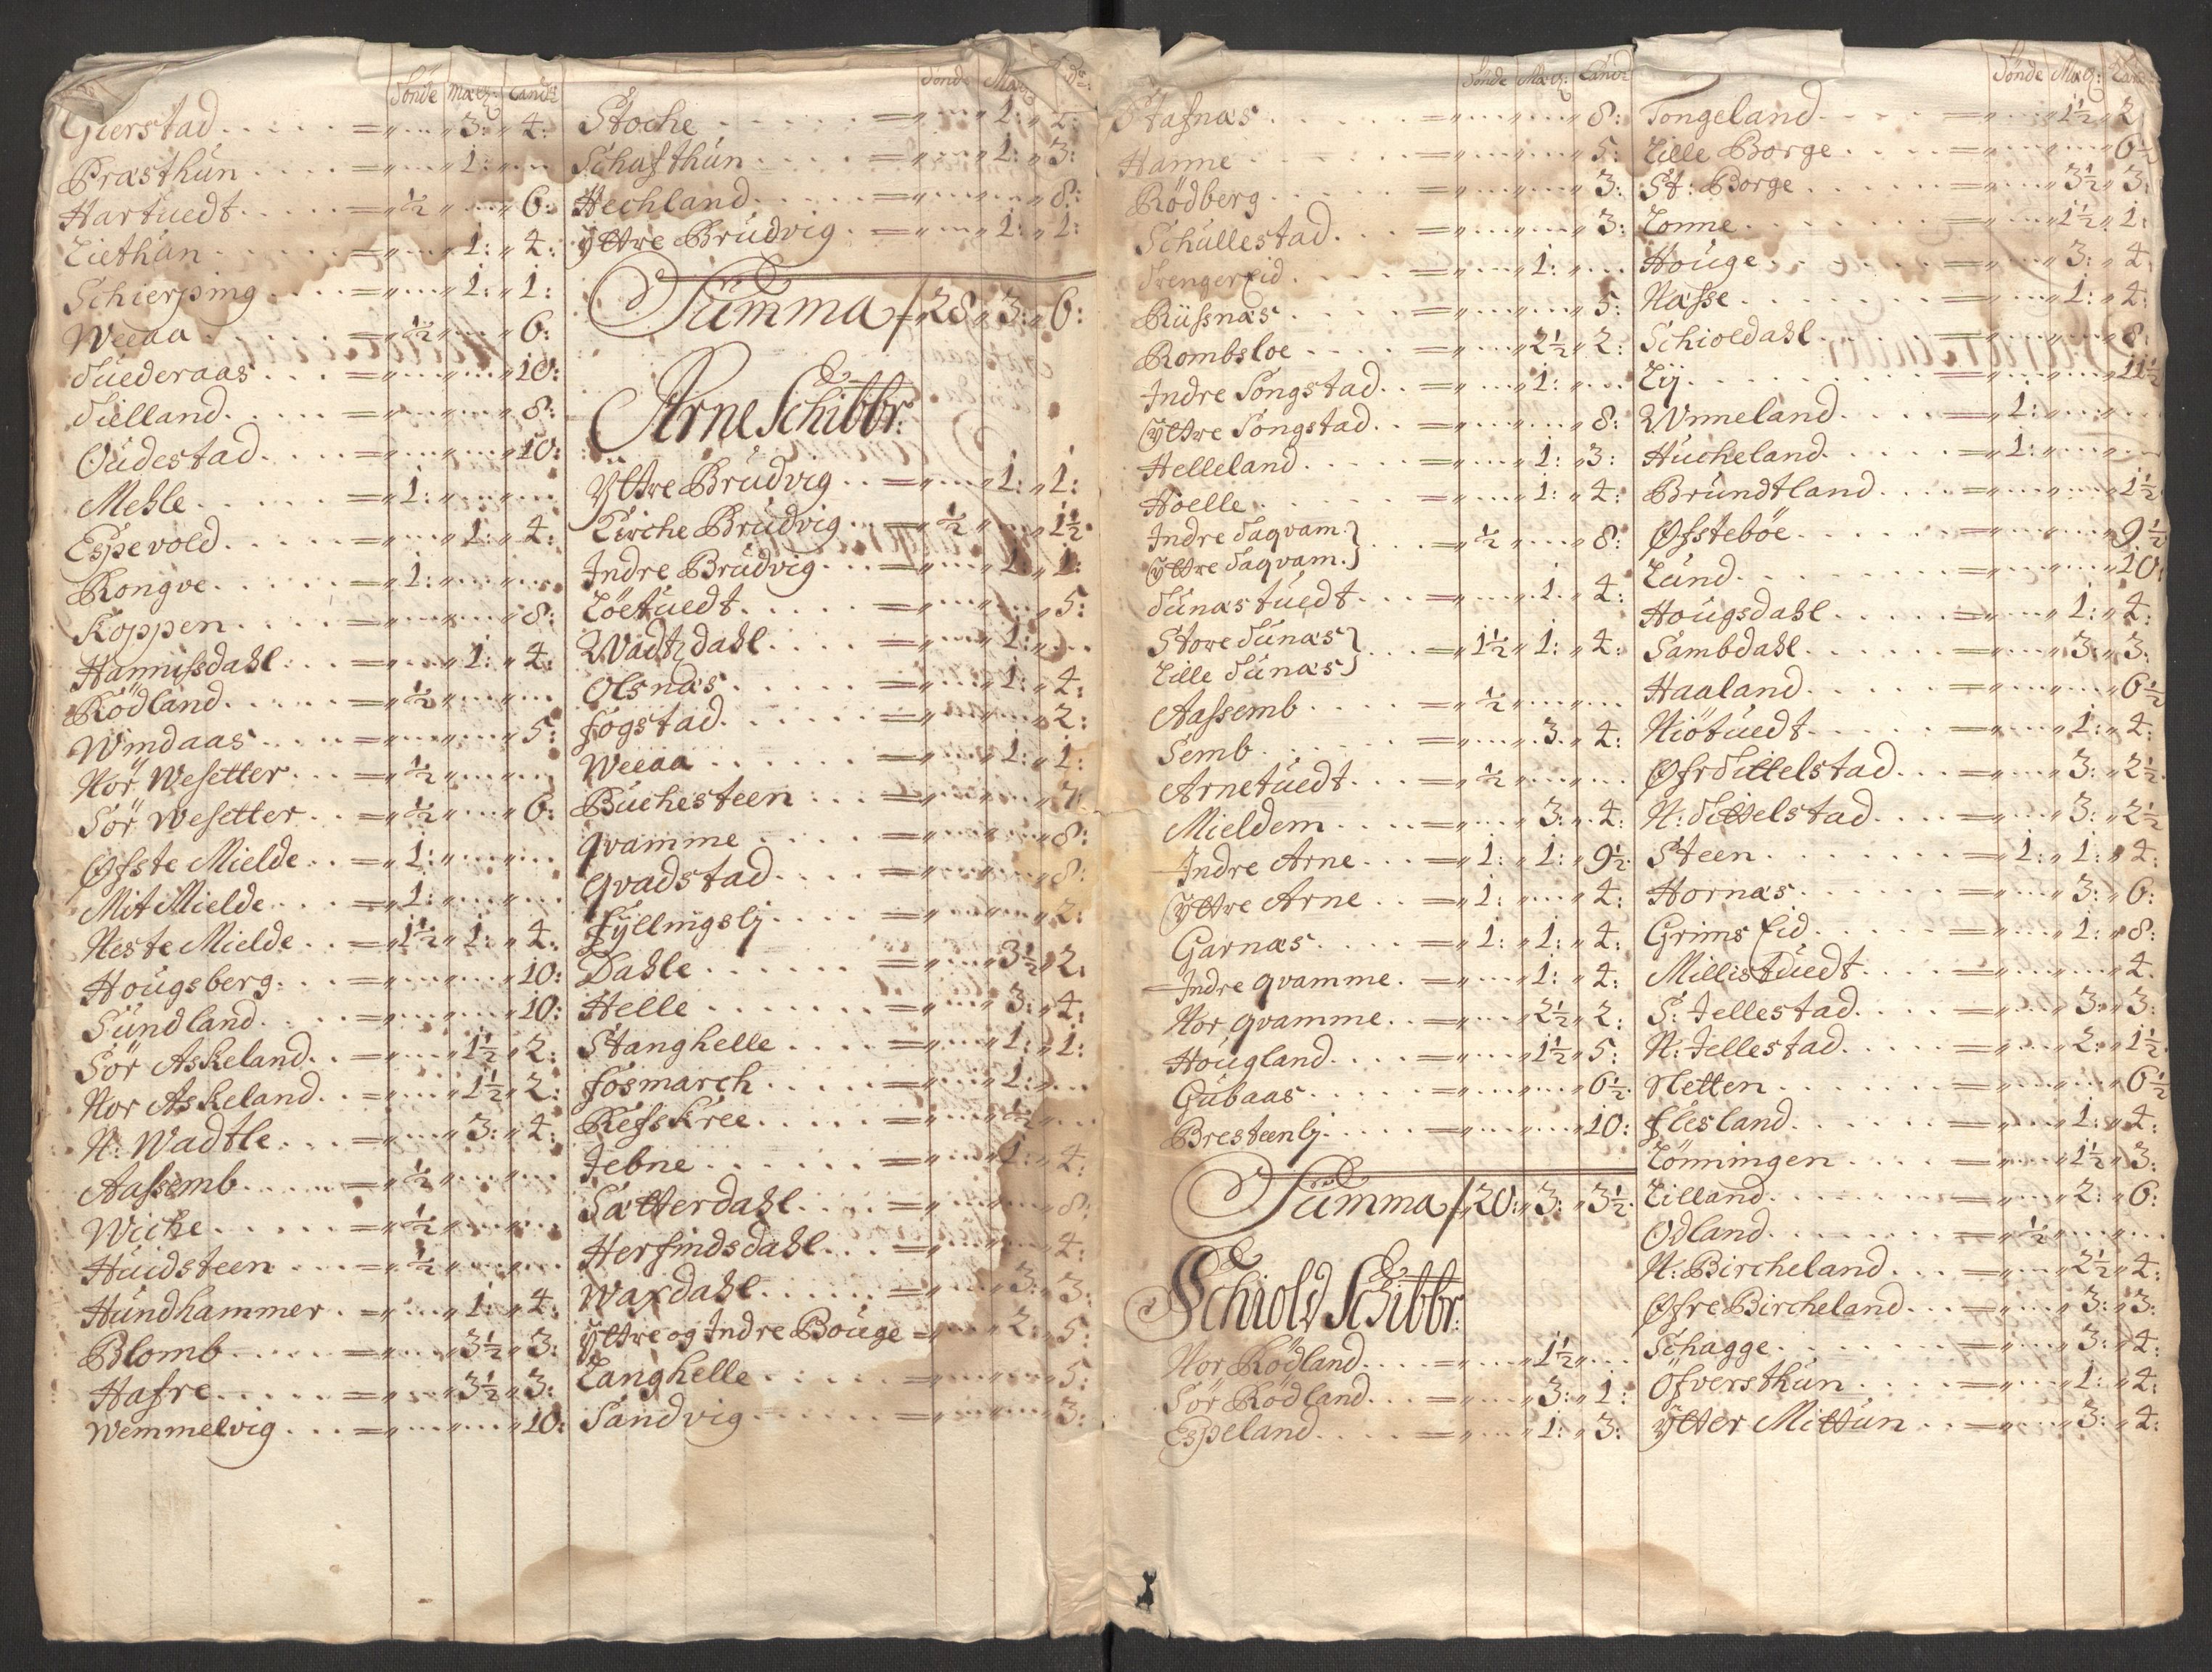 Tönde Mæl: Cand:
Gierstad ..... = „ .... „ 3: „ 4:
Præsthún .... = „ .... „ 1: „ ....
Hartuedt ..... = „ ½ „ .... „ 6:
Liethún ..... = „ .... „ 1: „ 4:
Schierping .... = „ .... „ 1: „ 1:
Weeaa ..... = „ ½ „ .... „ 6:
Tuederaas ... = „ .... „ .... „ 10:
Tuelland ..... = „ .... „ .... „ 8:
Oúdestad .... = „ .... „ .... „ 10:
Mehle ..... = „ 1: „ .... „ ....
Espevold ..... = „ .... „ 1: „ 4:
Rongve ..... = „ 1: „ .... „ ....
Koppen ..... = „ .... „ .... „ 8:
Hannissdahl .. = „ .... „ 1: „ 4:
Rödland ..... = „ ½ „ .... „ ....
Windaas .... = „ .... „ .... „ 5:
Nör Wesetter ... = „ ½ „ .... „ ....
Sör Wesetter .. = „ ½ „ .... „ 6:
Øfste Mielde .. = „ 1: „ .... „ ....
Mit Mielde ... = „ 1: „ .... „ ....
Neste Mielde .. = „ 1½ „ 1: „ 4:
Hoúgsberg ... = „ .... „ .... „ 10:
Súndland .... = „ .... „ .... „ 10:
Sör Askeland .. = „ .... „ 1½ „ 2:
Nor Askeland .. = „ .... „ 1½ „ 2:
N: Wadtle ... = „ .... „ 3: „ 4:
Aassemb ..... = „ ½ „ .... „ ....
Wiche ..... = „ ½ „ .... „ ....
Húidsteen ... = „ ½ „ .... „ ....
Húndhammer . = „ .... „ 1: „ 4:
Blomb ..... = „ .... „ 3½ „ 3:
Hafre ..... = „ .... „ 3½ „ 3:
Wemmelvig ... = „ .... „ .... „ 10:
Tönde Mæl:
Stoche ..... = „ .... „ 1: „ 4:
Schafthún .... = „ .... „ 1: „ 3:
Hechland ..... = „ .... „ .... „ 8:
Yttre Brúdvig . = „ .... „ 1: „ 1:
Súmma / „ 28 „ 3: „ 6:
Arne Schibbr:
Yttre Brúdvig .. = „ .... „ 1: „ 1:
Kirche Brúdvig .. = „ ½ „ .... „ 1½
Indre Brúdvig ... = „ .... „ 1: „ 1:
Löetúedt ..... = „ .... „ .... „ 5:
Wadtzdahl .... = „ .... „ 1: „ ....
Olsnæs ..... = „ .... „ 1: „ 4:
Fogstad ..... = „ .... „ .... „ 2:
Weeaa ..... = „ .... „ 1: „ 1:
Búchesteen ... = „ .... „ .... „ 7:
Qvamme .... = „ .... „ .... „ 8:
Qvadstad .... = „ .... „ .... „ 8:
Fyllingslj ..... = „ .... „ .... „ 2:
Dahle ..... = „ .... „ 3½ „ 2:
Helle ..... = „ .... „ 3: „ 4:
Stanghelle .... = „ .... „ 1: „ 1:
Fosmarch .... = „ .... „ 1: „ ....
Refskree .... = „ .... „ 1½ „ ....
Jebne ..... = „ .... „ 1: „ 4:
Sætterdahl .... = „ .... „ .... „ 8:
Herfindsdahl ... = „ .... „ .... „ 4:
Waxdahl ..... = „ .... „ 3: „ 3:
Yttre og Indre Boúge = „ .... „ 2: „ 5:
Langhelle ..... = „ .... „ .... „ 5:
Sandvig ..... = „ .... „ .... „ 3:
Tönde Mæl: Cand:
Stafnæs ..... = „ .... „ .... „ 8:
Hanne ..... = „ .... „ .... „ 5:
Rödberg ..... = „ .... „ .... „ 3:
Schúllestad ... = „ .... „ .... „ 3:
Trengereid .... = „ .... „ 1: „ ....
Rúfsnæs ..... = „ .... „ .... „ 5:
Rombsloe .... = „ .... „ 2½ „ 2:
Indre Songstad .. = „ .... „ 1: „ ....
Yttre Songstad .. = „ .... „ .... „ 8:
Helleland ..... = „ .... „ 1: „ 3:
Hoelle ..... = „ .... „ 1: „ 4:
Indre Taqvam. }
Yttre Taqvam. } ... = „ ½ „ .... „ 8:
Túnæstúedt ... = „ .... „ 1. „ 4:
Store Túnæs }
Lille Túnæs } ... = „ 1½ „ 1: „ 4:
Aassemb .... = „ ½ „ .... „ ....
Semb ..... = „ .... „ 3. „ 4:
Arnetúedt ... = „ ½ „ .... „ ....
Mieldem .... = „ .... „ 3: „ 4:
Indre Arne ... = „ 1: „ 1: „ 9½:
Yttre Arne ... = „ 1: „ .... „ 4:
Garnæs .... = „ 1: „ 1: „ 4:
Indre Qvamme . = „ .... „ 1: „ 4:
Nor Qvamme .. = „ .... „ 2½ „ 2:
Hoúgland .... = „ .... „ 1½ „ 5:
Gúbaas ..... = „ .... „ .... „ 6½:
Bresteenlj ..... = „ .... „ .... „ 10:
Súmma / „ 20: „ 3: „ 3½:
Schiold Schibbr:
Nor Rödland ... = „ .... „ 1½ „ ....
Sör Rödland ... = „ .... „ 3: „ 1:
Espeland .... = „ .... „ 1: „ 3:
Tönde Mæl: Can
Tongeland .... = „ .... „ 1½ „ 2
Lille Borge .... = „ .... „ .... „ 6½
St: Borge .... = „ .... „ 3½ „ 3:
Lonne ..... = „ .... „ 1½ „ 1:
Hoúge ..... = „ .... „ 3: „ 4:
Næsse ..... = „ .... „ 1: „ 4:
Schioldahl .... = „ .... „ .... „ 8:
Lij ..... = „ .... „ .... „ 11½
Winneland .... = „ 1: „ .... „ ....
Húcheland .... = „ 1: „ .... „ ....
Brúndtland .... = „ .... „ .... „ 1½
Øfsteböe ..... = „ .... „ .... „ 9½
Lúnd ..... = „ .... „ .... „ 10:
Hoúgsdahl .... = „ .... „ 1: „ 4:
Sambdahl ..... = „ .... „ 3: „ 3:
Haaland ..... = „ .... „ .... „ 6½
Niötúedt ..... = „ .... „ 1: „ 4:
Øfr Tittelstad ... = „ .... „ 3: „ 2½
N: Tittelstad ... = „ .... „ 3: „ 2½
Steen ..... = „ 1: „ 1: „ 4:
Hornæs ..... = „ .... „ 3: „ 6:
Grims Eid .... = „ .... „ 1: „ 8:
Millistúedt .... = „ .... „ .... „ 4.
S: Jellestad .... = „ .... „ 3: „ 3:
N: Jellestad .... = „ .... „ 2: „ 1½
Netten ..... = „ .... „ .... „ 6½
Flesland ..... = „ .... „ 1: „ 4:
Lönningen .... = „ .... „ 1½ „ 3:
Lilland ..... = „ .... „ 2: „ 6:
Odland ..... = „ ½ „ .... „ ....
N: Bircheland ... = „ .... „ 2½ „ 4:
Øfre Bircheland .. = „ .... „ 3: „ 3:
Schagge ..... = „ .... „ 3: „ 4:
Öfversthún .... = „ .... „ 1: „ 4:
Ytter Mittún .. = „ .... „ 3: „ 4: